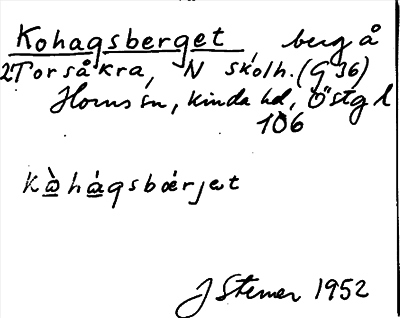 Kohagsberget, berg å
2Torsåkra, N skolh. (G 36)
Horns sn, Kinda hd, Östgl
106
kὼhάgsbǽrjət
J Sterner 1952